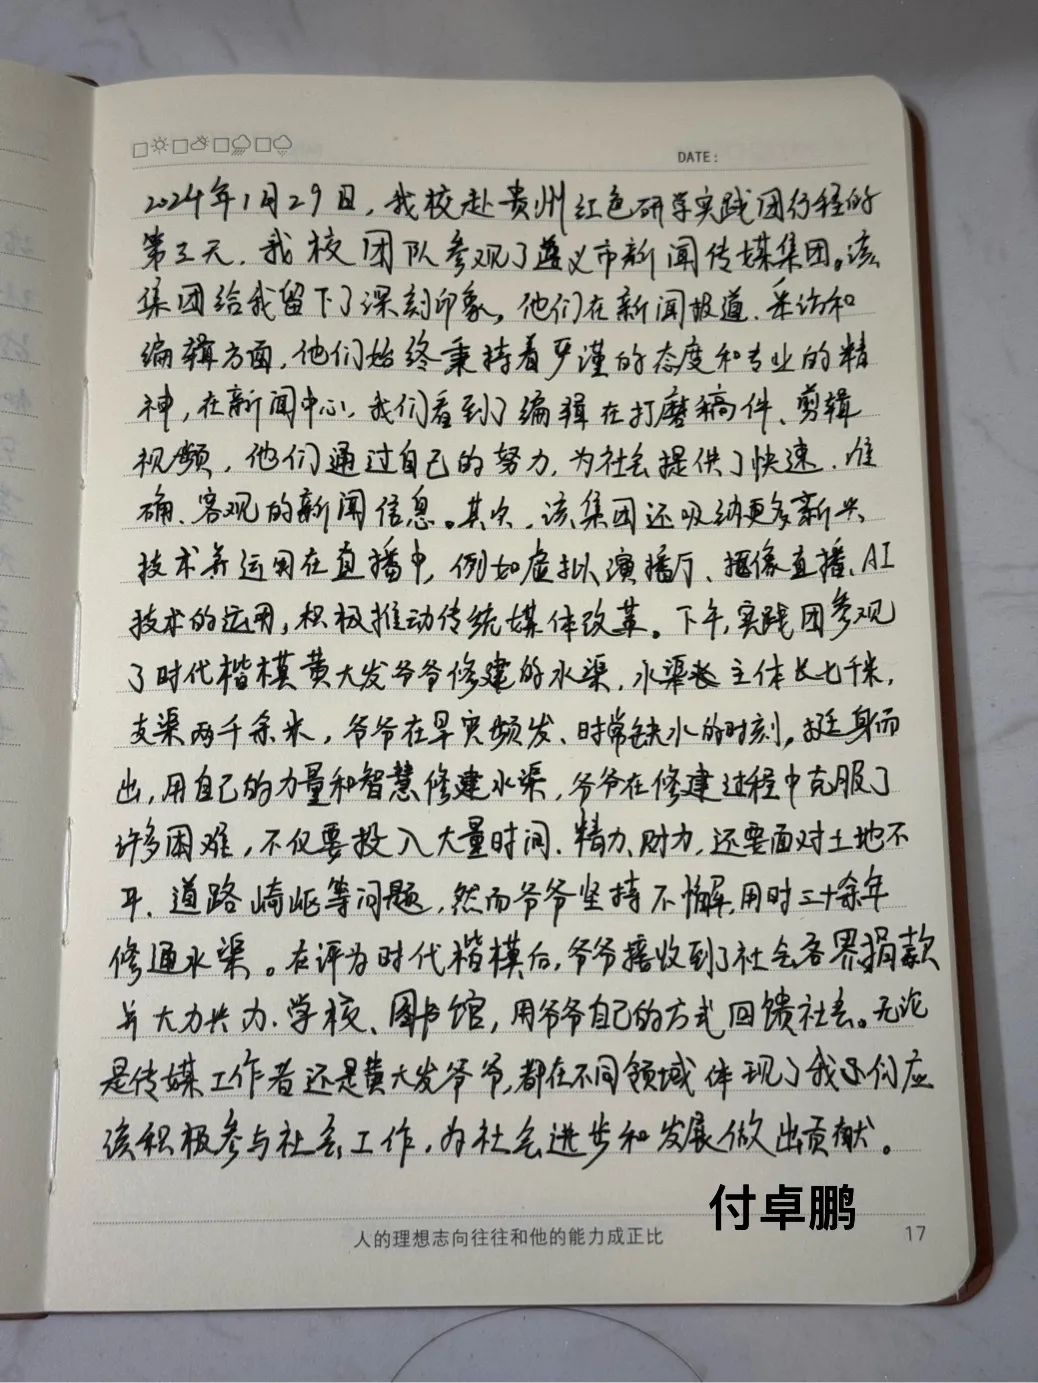 DATE:
2024年1月29日,我校赴贵州红色研学实践团行程的
第三天,我校团队参观了遵义市新闻传媒集团。该
集团给我留下了深刻印象,他们在新闻报道、采访和
编辑方面,他们始终秉持着严谨的态度和专业的精
神,在新闻中心,我们看到了编辑在打磨稿件、剪辑
视频,他们通过自己的努力,为社会提供了快速、准
确、客观的新闻信息。其次,该集团还吸纳更多新兴
技术并运用在直播中,例如虚拟演播厅、抠像直播、AI
技术的运用,积极推动传统媒体改革。下午,实践团参观
了时代楷模黄大发爷爷修建的水渠,水渠主体长七千米,
支渠两千余米,爷爷在旱灾频发、时常缺水的时刻,挺身而
出,用自己的力量和智慧修建水渠,爷爷在修建过程中克服了
许多困难,不仅要投入大量时间、精力、财力,还要面对土地不
平、道路崎岖等问题,然而爷爷坚持不懈,用时三十余年
修通水渠。在评为时代楷模后,爷爷接收到了社会各界捐款
并大力兴办学校、图书馆,用爷爷自己的方式回馈社会。无论
是传媒工作者还是黄大发爷爷,都在不同领域体现了我们应
该积极参与社会工作,为社会进步和发展做出贡献。
付卓鹏
人的理想志向往往和他的能力成正比
17